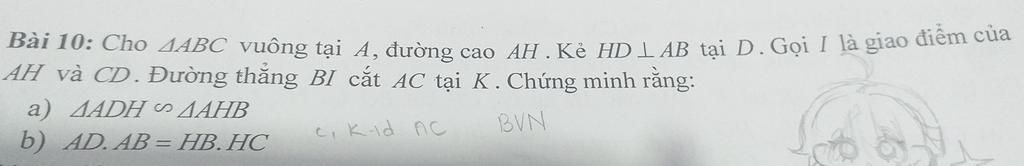 Bài 10: Cho ΔABC vuông tại A, đường cao AH. Kẻ HD ⊥ AB tại D. Gọi I là giao điểm của
AH và CD. Đường thẳng BI cắt AC tại K. Chứng minh rằng:
a) ΔADH ∽ ΔAHB
b) AD. AB = HB. HC
c, K id AC BVN